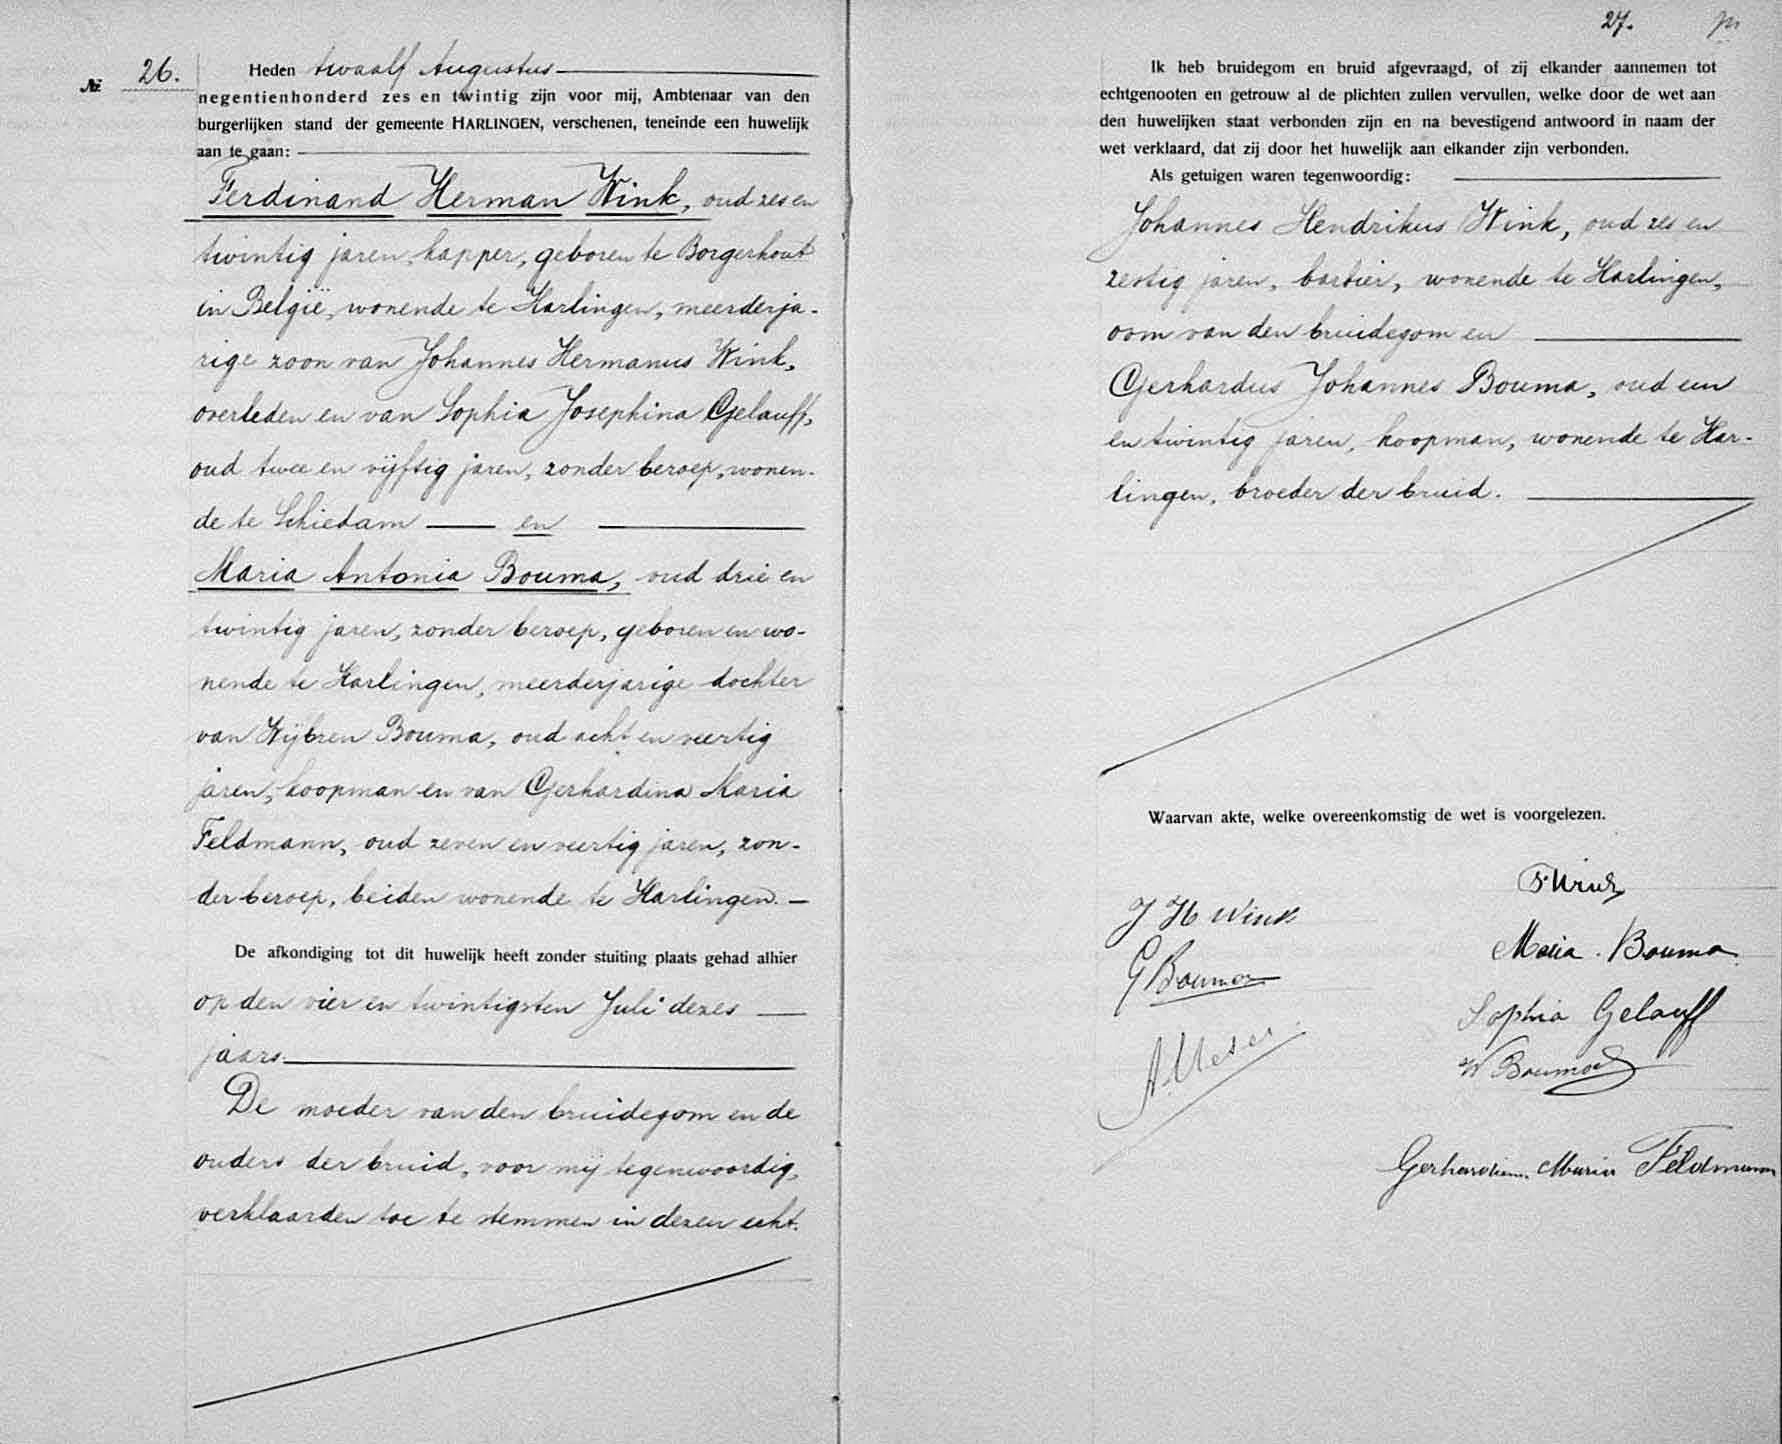 № 26.
Heden twaalf Augustus
negentienhonderd zes en twintig zijn voor mij, Ambtenaar van den
burgerlijken stand der gemeente HARLINGEN, verschenen, teneinde een huwelijk
aan te gaan:
Ferdinand Herman Wink, oud zes en
twintig jaren, kapper, geboren te Borgerhout
in België, wonende te Harlingen, meerderja-
rige zoon van Johannes Hermanus Wink,
overleden en van Sophia Josephina Gelauff,
oud twee en vijftig jaren, zonder beroep, wonen-
de te Schiedam en
Maria Antonia Bouma, oud drie en
twintig jaren, zonder beroep, geboren en wo-
nende te Harlingen, meerderjarige dochter
van Wijbren Bouma, oud acht en veertig
jaren, koopman en van Gerhardina Maria
Feldmann, oud zeven en veertig jaren, zon-
der beroep, beiden wonende te Harlingen.
De afkondiging tot dit huwelijk heeft zonder stuiting plaats gehad alhier
op den vier en twintigsten Juli dezes
jaars.
De moeder van den bruidegom en de
ouders der bruid, voor mij tegenwoordig,
verklaarden toe te stemmen in dezen echt.
27.
Ik heb bruidegom en bruid afgevraagd, of zij elkander aannemen tot
echtgenooten en getrouw al de plichten zullen vervullen, welke door de wet aan
den huwelijken staat verbonden zijn en na bevestigend antwoord in naam der
wet verklaard, dat zij door het huwelijk aan elkander zijn verbonden.
Als getuigen waren tegenwoordig:
Johannes Hendrikus Wink, oud zes en
zestig jaren, barbier, wonende te Harlingen,
oom van den bruidegom en
Gerhardus Johannes Bouma, oud een
en twintig jaren, koopman, wonende te Har-
lingen, broeder der bruid.
Waarvan akte, welke overeenkomstig de wet is voorgelezen.
F. Wink
J H Wink
Maria. Bouma
G Bouma
Sophia Gelauff
W Bouma
Gerhardina Maria Feldmann